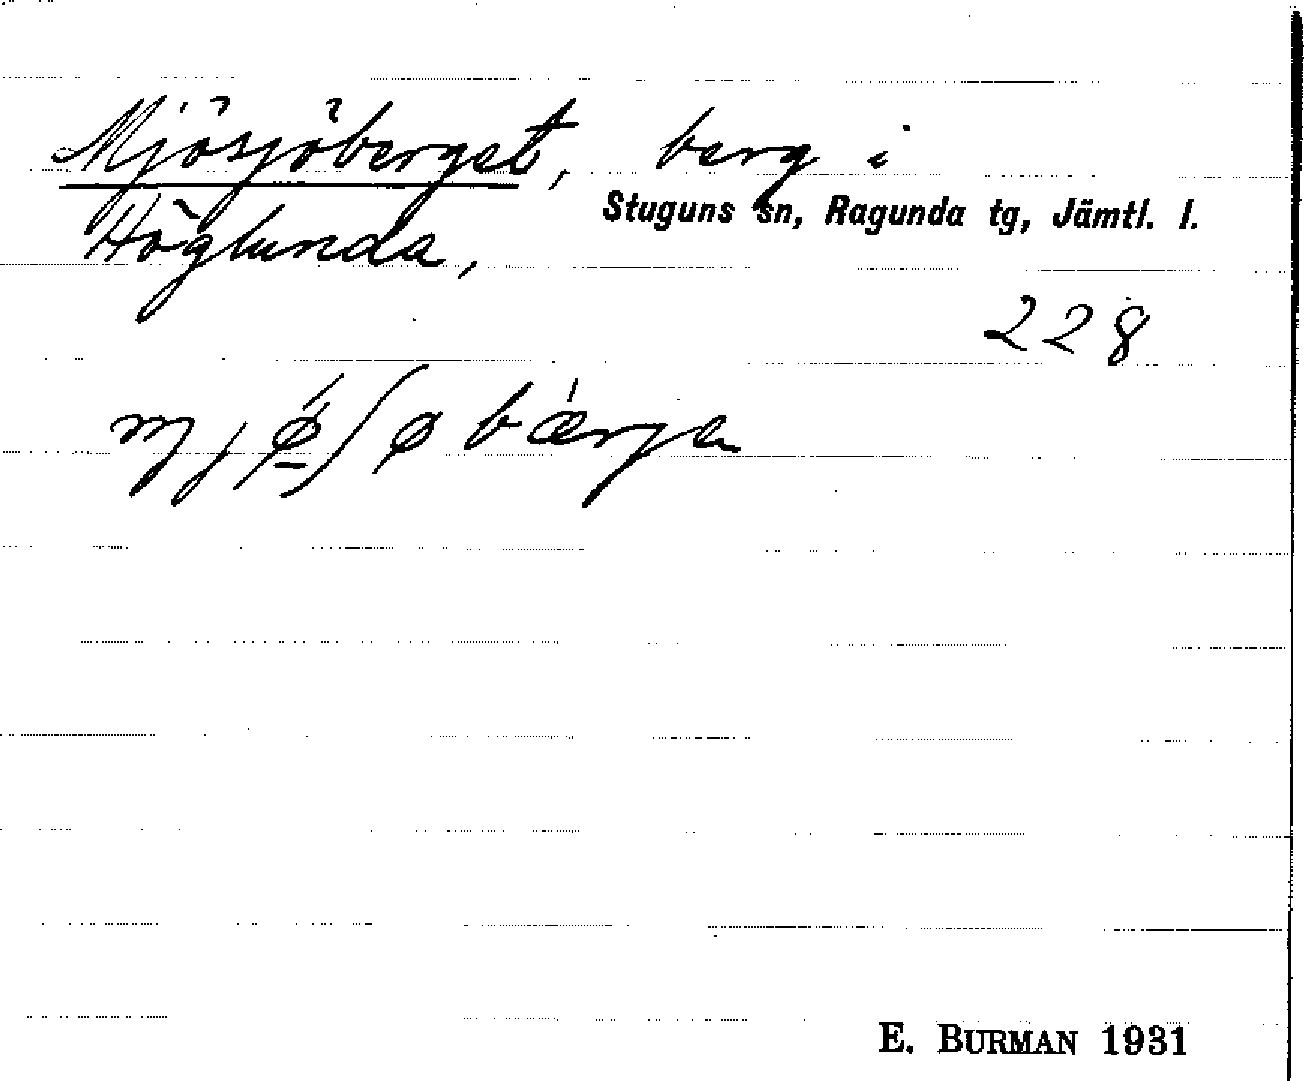 Mjösjöberget, berg i
Stuguns sn, Ragunda tg, Jämtl. l.
Höglunda,
228
mjǿ̱ʃøbǽrjа
E. BURMAN 1931